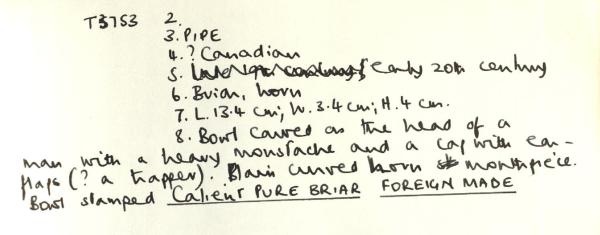 T3753 2.
3. PIPE
4. ? Canadian
5. early 20th century
6. Briar, horn
7. L. 13.4 cm; W. 3.4 cm; H. 4 cm.
8. Bowl carved as the head of a
man with a heavy moustache and a cap with ear-
flaps (? a trapper). Plain curved horn mouthpiece.
Bowl stamped Calient PURE BRIAR FOREIGN MADE